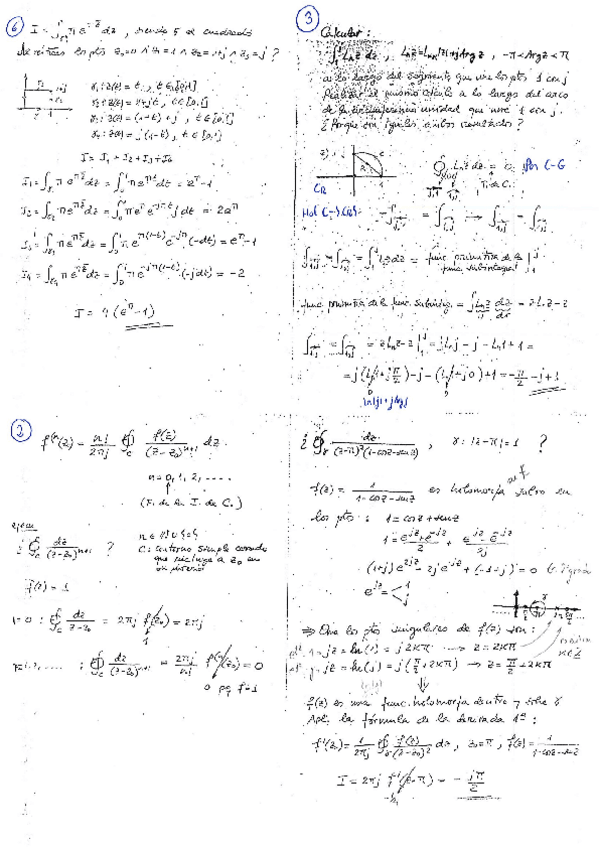 6
I = ∮ π e^{π z̄} dz, siendo γ el cuadrado
de vértices los ptos z₀=0 ∧ z₁=1 ∧ z₂=1+j ∧ z₃=j ?
γ₁: z(t) = t, t∈[0,1]
γ₂: z(t) = 1+jt, t∈[0,1]
γ₃: z(t) = (1-t)+j, t∈[0,1]
γ₄: z(t) = j(1-t), t∈[0,1]
I = I₁ + I₂ + I₃ + I₄
I₁ = ∫ π e^{π z̄} dz = ∫₀¹ π e^{πt} dt = e^π - 1
I₂ = ∫ π e^{π z̄} dz = ∫₀¹ π e^π e^{-πjt} j dt = 2e^π
I₃ = ∫ π e^{π z̄} dz = ∫₀¹ π e^{π(1-t)} e^{-jπ} (-dt) = e^π - 1
I₄ = ∫ π e^{π z̄} dz = ∫₀¹ π e^{-jπ(1-t)} (-j dt) = -2
I = 4(e^π - 1)
3
Calcular:
∫₁ʲ Ln z dz, Ln z = Ln|z| + j Arg z, -π < Arg z < π
a lo largo del segmento que une los ptos 1 con j
Realizar el mismo cálculo a lo largo del arco
de la circunferencia unidad que une 1 con j.
¿Porqué son iguales ambos resultados?
∮ Ln z dz = 0 Por C-G
func. primitiva de la
func. subintegral
func. primitiva de la func. subintegral = ∫ Ln z dz = z Ln z - z
= z Ln z - z |₁ʲ = j Ln j - j - Ln 1 + 1 =
= j(Ln 1 + j π/2) - j - (Ln 1 + j0) + 1 = -π/2 - j + 1
2
fⁿ(z₀) = n!/2πj ∮_C f(z)/(z-z₀)^{n+1} dz
n = 0, 1, 2, ....
(F. de la I. de C.)
¿ ∮_C dz/(z-z₀)^{n+1} ? n ∈ ℕ ∪ {0}
C: contorno simple cerrado
que incluye a z₀ en
su interior
f(z) = 1
n=0: ∮_C dz/(z-z₀) = 2πj f(z₀) = 2πj
1
n=1,2,.....: ∮_C dz/(z-z₀)^{n+1} = 2πj/n! fⁿ(z₀) = 0
0 pq f=1
¿ ∮_γ dz/((z-π)²(1-cos z-sen z)), γ: |z-π|=1 ?
f(z) = 1/(1-cos z-sen z) es holomorfa en ℂ salvo en
los ptos: 1 = cos z + sen z
1 = (e^{jz}+e^{-jz})/2 + (e^{jz}-e^{-jz})/2j
e^{jz} = < 1 j
⇒ Que los ptos singulares de f(z) son:
jz = ln(1) = j2kπ → z = 2kπ
jz = ln(j) = j(π/2+2kπ) → z = π/2+2kπ
f(z) es una func. holomorfa dentro y sobre γ
Apl. la fórmula de la derivada 1ª:
f'(z₀) = 1/2πj ∮_γ f(z)/(z-z₀)² dz, z₀=π, f(z) = 1/(1-cos z-sen z)
I = 2πj f'(z=π) = -jπ/2
-1/4